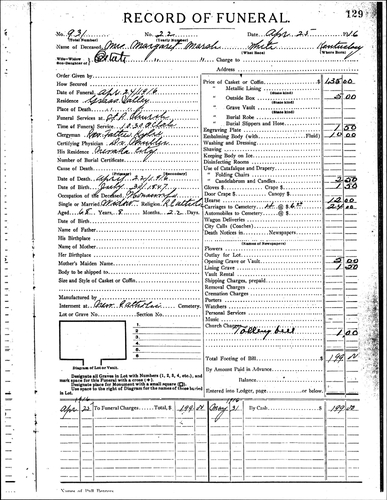 RECORD OF FUNERAL.
129
No. 931 No. 22 Date Apr. 25 1916
(Total Number) (Yearly Number)
Name of Deceased Mrs. Margaret Marsh White Kentucky
(What Race) (Where Born)
Estate Charge to
Address
Order Given by
How Secured
Date of Funeral Apr 24/1916
Residence
Place of Death
Funeral Services at Church
Time of Funeral Service 10:30
Clergyman Rev. Father
Certifying Physician Dr.
His Residence City
Number of Burial Certificate
Cause of Death
(Primary) (Secondary)
Date of Death April 22/1916
Date of Birth July 31/1847
Occupation of the Deceased
Single or Married Religion Catholic
Aged 68 Years, 8 Months, 22 Days.
Date of Birth
Name of Father
His Birthplace
Name of Mother
Her Birthplace
Mother's Maiden Name
Body to be shipped to
Size and Style of Casket or Coffin
Manufactured by
Interment at New Cemetery.
Lot or Grave No. Section No.
Diagram of Lot or Vault.
Designate all Graves in Lot with Numbers (1, 2, 3, 4, etc.), and
mark space for this Funeral with a cross (+).
Designate place for Monument with a small square (□).
Use space to the right of Diagram for the names of those buried
in Lot.
Price of Casket or Coffin $ 135.00
" Metallic Lining
(State kind)
" Outside Box 5 00
(State kind)
" Grave Vault
(State kind)
" Burial Robe
" Burial Slippers and Hose
Engraving Plate 1 50
Embalming Body (with Fluid) 10 00
Washing and Dressing
Shaving
Keeping Body on Ice
Disinfecting Rooms
Use of Catafalque and Drapery
" Folding Chairs
" Candelabrum and Candles 2 00
Gloves $ Crape $ 1 50
Door Crape $ Canopy $
Hearse 12 00
Carriages to Cemetery 4 @ $6.00 24 00
Automobiles to Cemetery @ $
Wagon Deliveries
City Calls (Coaches)
Death Notices in Newspapers
(Names of Newspapers)
Flowers
Outlay for Lot
Opening Grave or Vault 5 00
Lining Grave 1 50
Vault Rental
Shipping Charges, prepaid
Removal Charges
Cremation Charges
Porters
Watchers
Personal Services
Music
Church Charges
Tolling bell 1 00
Total Footing of Bill $ 199
By Amount Paid in Advance
Balance $
Entered into Ledger, page or below.
1916 1916
Apr 25 To Funeral Charges Total, $ 199 00 May 31 By Cash $ 199 00
Names of Pall Bearers